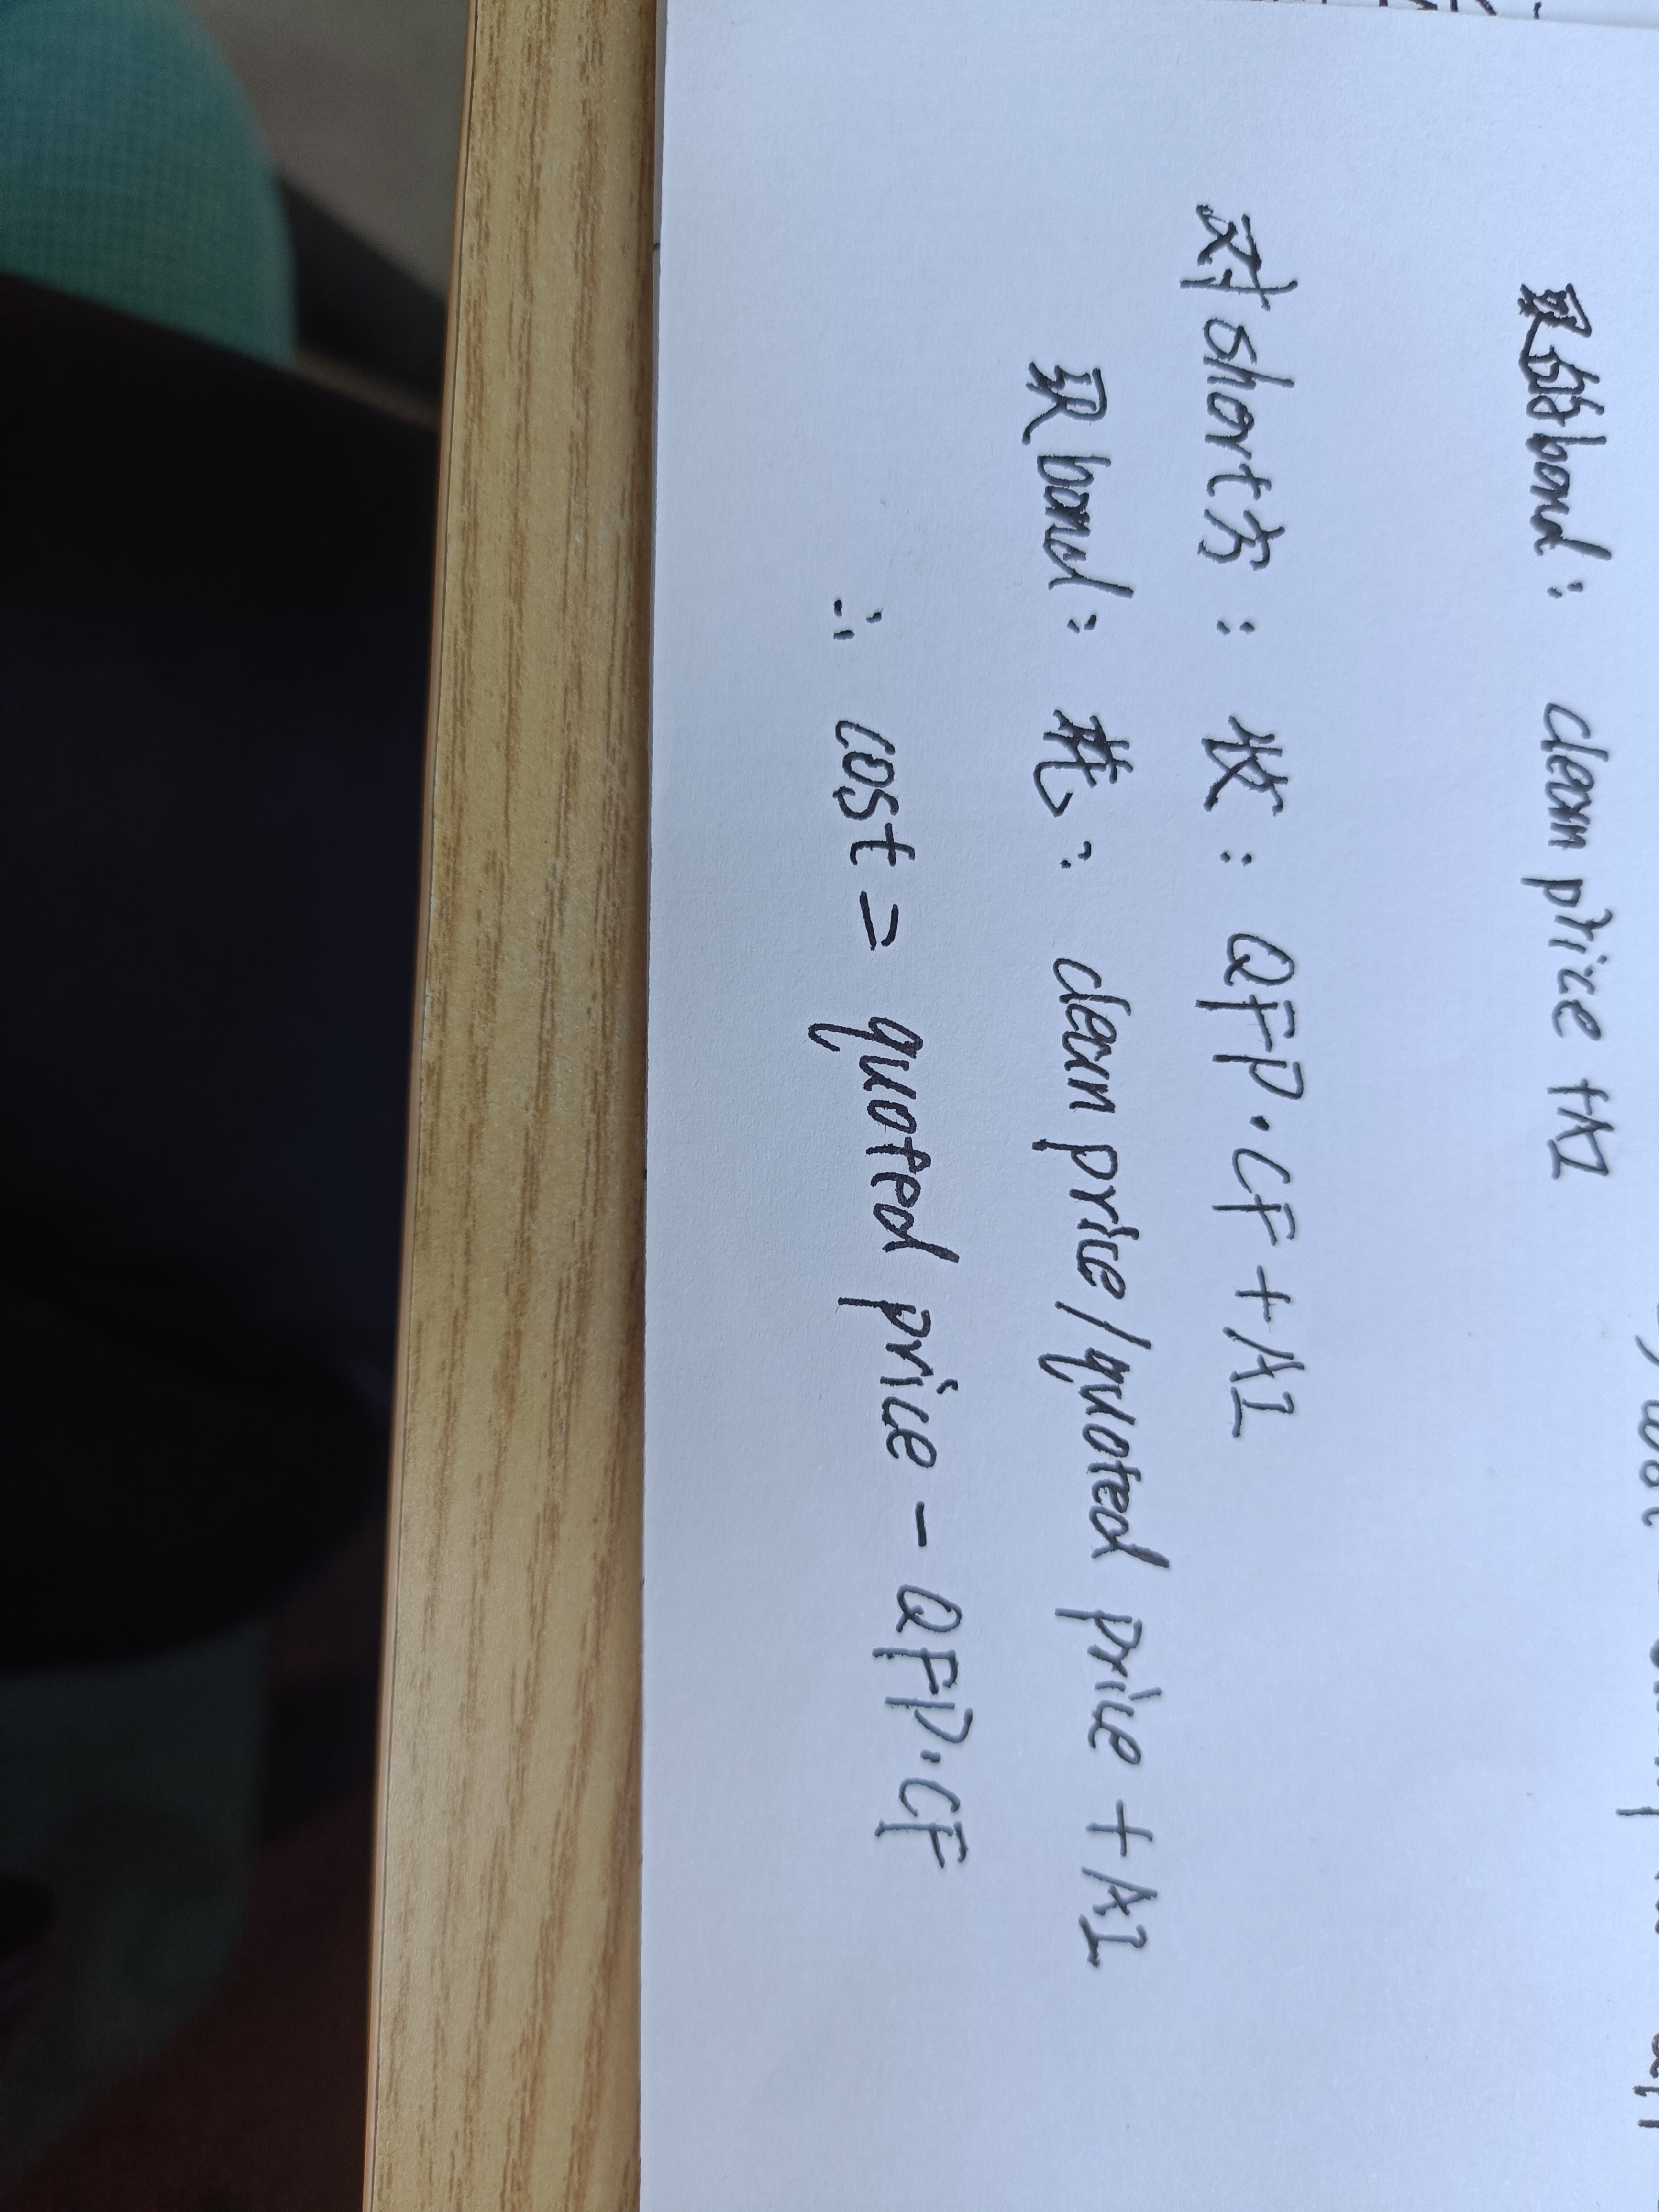 bond: clean price +AI
对short方: 收: QFP·CF+AI
买bond: 花: clean price/quoted price +AI
∴ cost = quoted price - QFP·CF